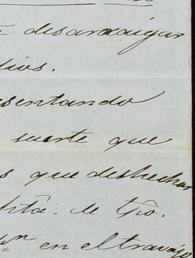 desarraigar
dios.
sentando
suerte que
s que deshechas
tita. de tpo.
en el travajo